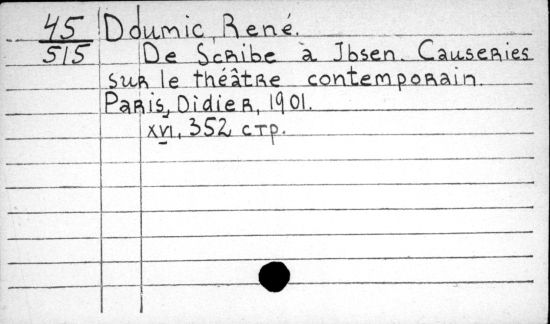 45 Doumic, René.
515 De Scribe à Ibsen. Causeries
sur le théâtre contemporain.
Paris, Didier, 1901.
XVI, 352 стр.